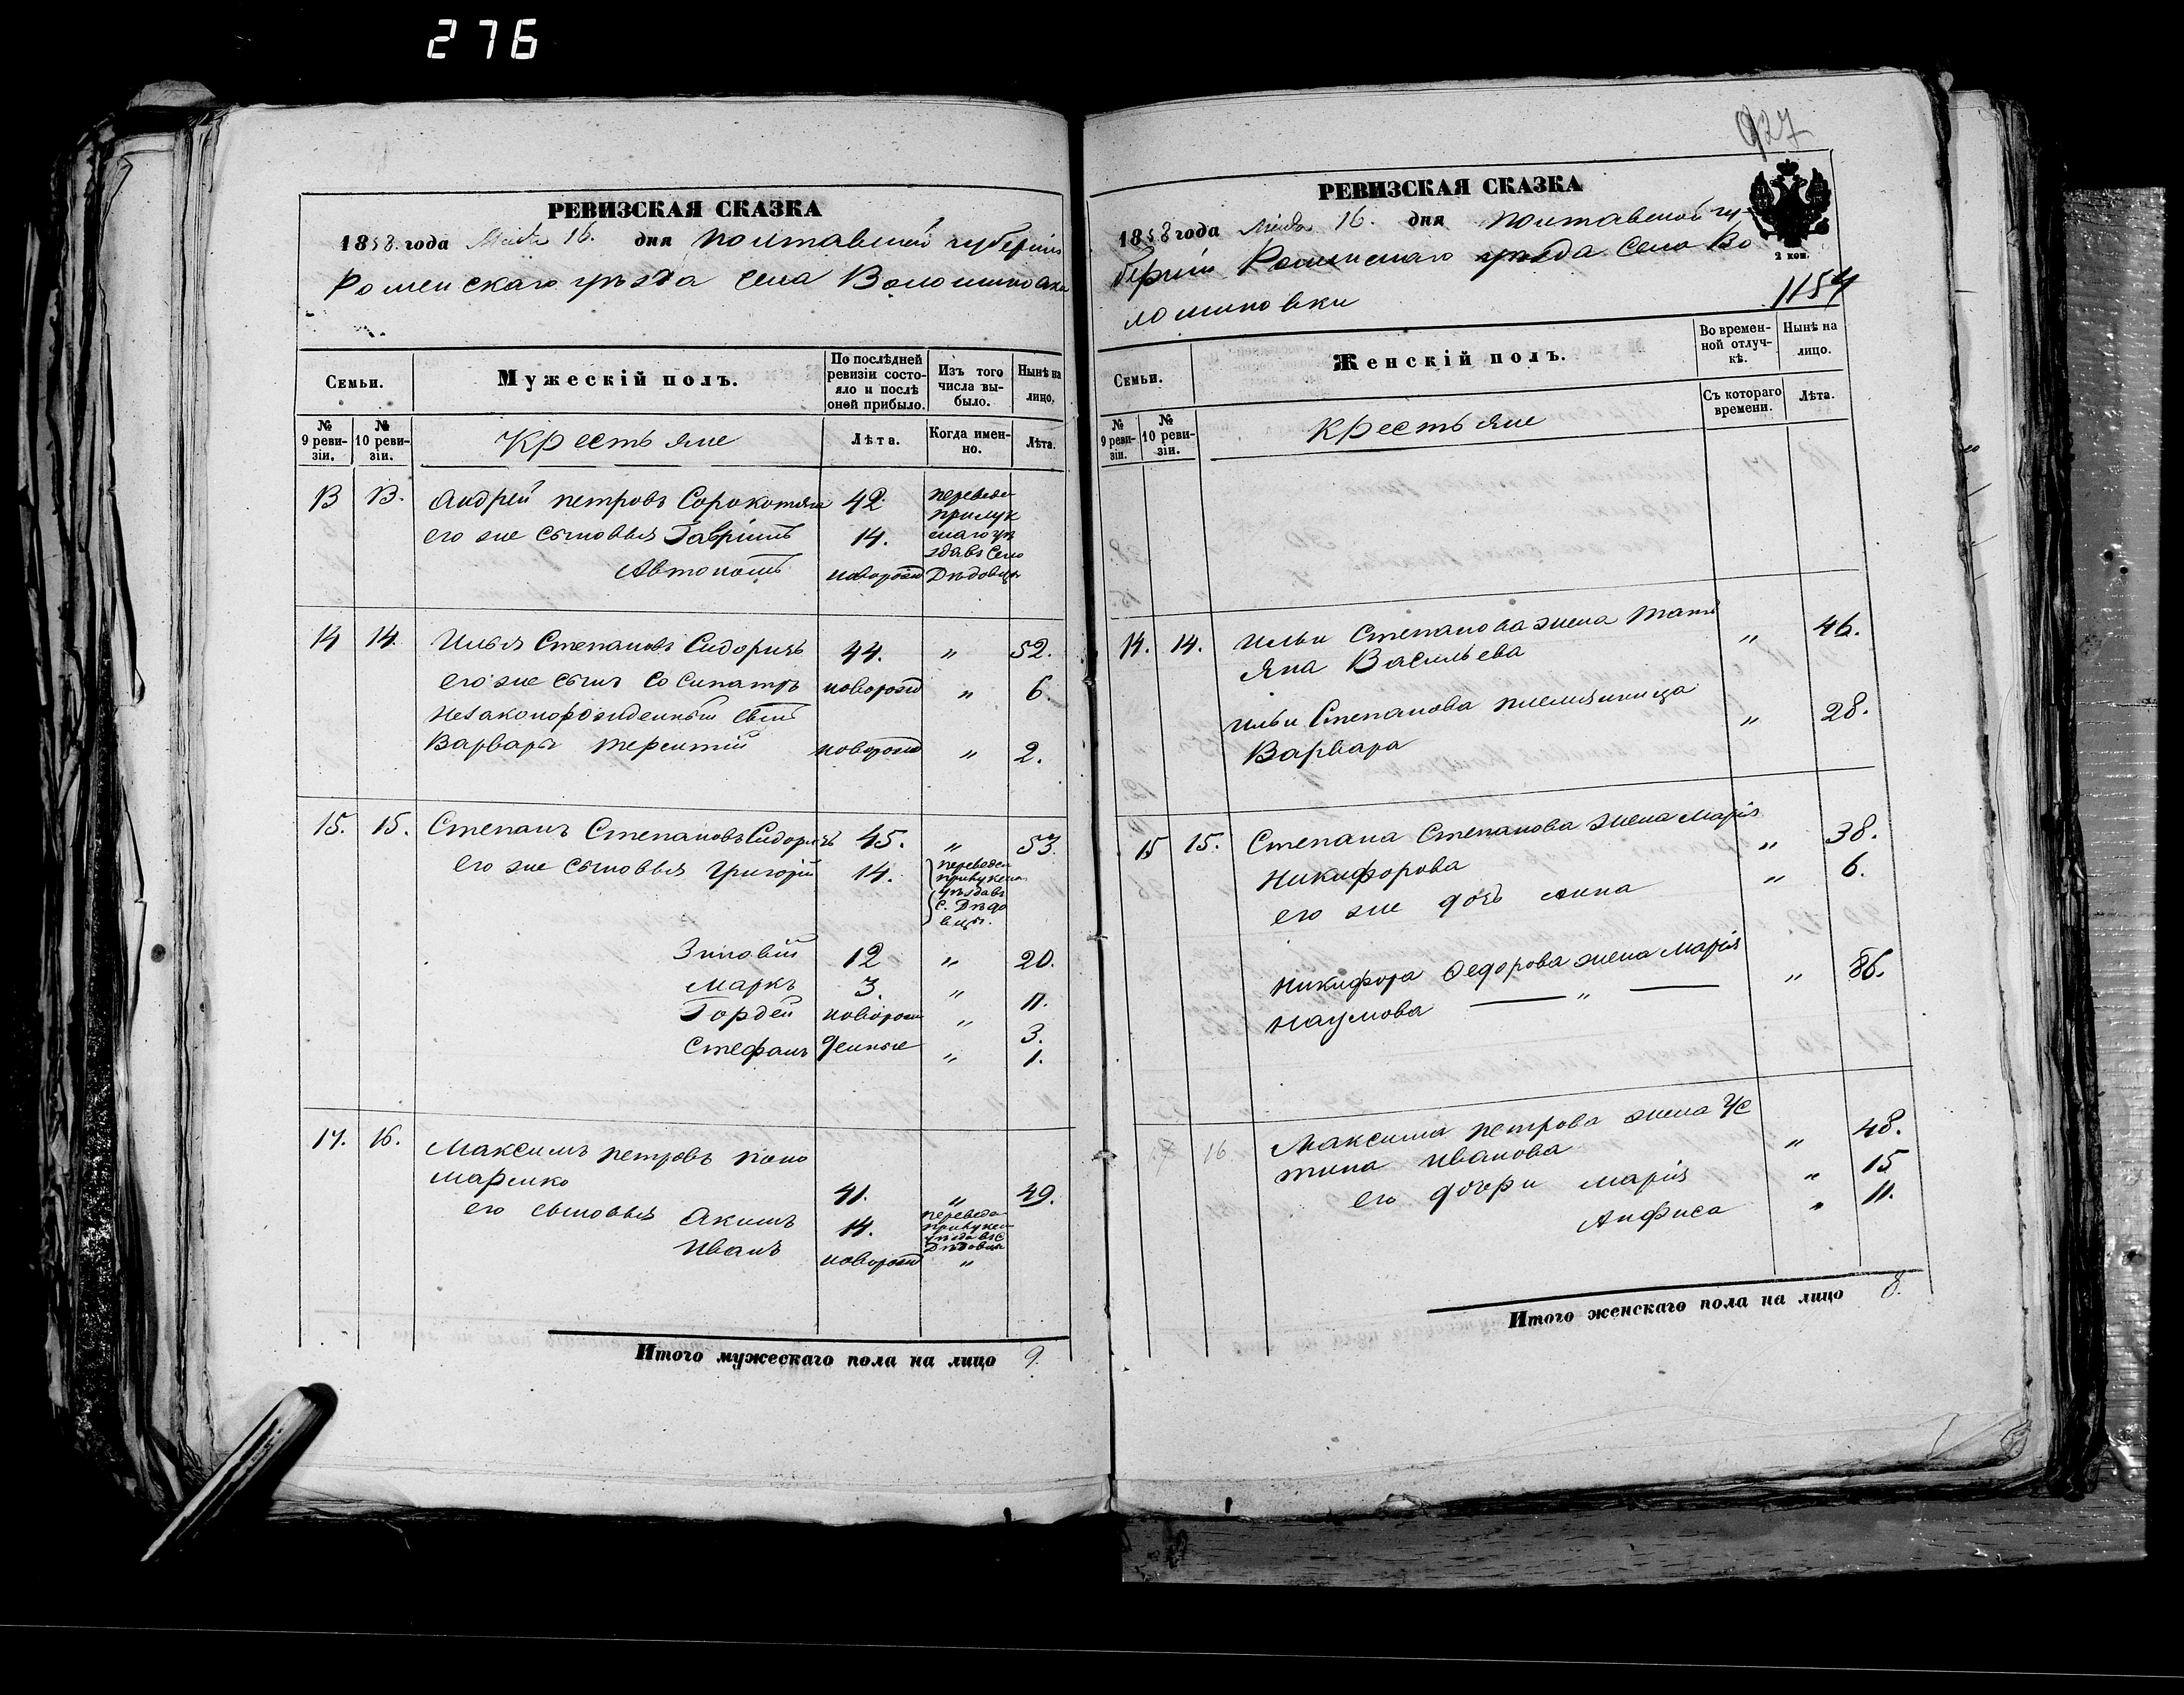 276
РЕВИЗСКАЯ СКАЗКА
1858. года Маія 16. дня Полтавской губерніи
Роменскаго уѣзда Села Волошиновки
Семьи.
Мужескій полъ.
По послѣдней ревизіи состояло и послѣ оной прибыло.
Изъ того числа выбыло.
Нынѣ на лицо.
№ 9 ревизіи.
№ 10 ревизіи.
Крестьяне
Лѣта.
Когда именно.
Лѣта.
13 13. Андрей Петровъ Сорокотяга 42 переведе
Прилук
его же сыновья Гавріилъ 14. скаго уѣ
зда въ Село
Автономъ новорожд Дѣдовцы
14 14. Илья Степановъ Сидоричъ 44. " 52.
его же сынъ Сосипатръ новорожд " 6.
Незаконорожденный сынъ
Варвары Терентій новорожд " 2.
15. 15. Степанъ Степановъ Сидоричъ 45. " 53.
его же сыновья Григорій 14. переведен
Прилукска
уѣзда въ
С. Дѣдо
вцы.
Зиновій 12 " 20.
Маркъ 3. " 11.
Гордей новорож " 3.
Стефанъ денные " 1.
17. 16. Максимъ Петровъ Поно
маренко 41. " 49.
его сыновья Акимъ 14. переведе
Прилукск
уѣзда въ С
Дѣдовцы
Иванъ новорожд "
Итого мужескаго пола на лицо 9.
927
РЕВИЗСКАЯ СКАЗКА
1858 года Маія 16. дня Полтавской гу-
берніи Роменскаго уѣзда Села Во
лошиновки
2 коп.
1154
Семьи.
Женскій полъ.
Во временной отлучкѣ.
Нынѣ на лицо.
№ 9 ревизіи.
№ 10 ревизіи.
Крестьяне
Съ котораго времени.
Лѣта.
14. 14. Ильи Степанова жена Тать
яна Васильева " 46.
Ильи Степанова племянница
Варвара " 28.
15 15. Степана Степанова жена Марія
Никифорова " 38.
его же дочь Анна " 6.
Никифора Федорова жена Марія
Наумова " " 86.
17 16 Максима Петрова жена Ус
тина Иванова " 48.
его дочери Марія " 15
Анфиса " 11.
Итого женскаго пола на лицо 8.